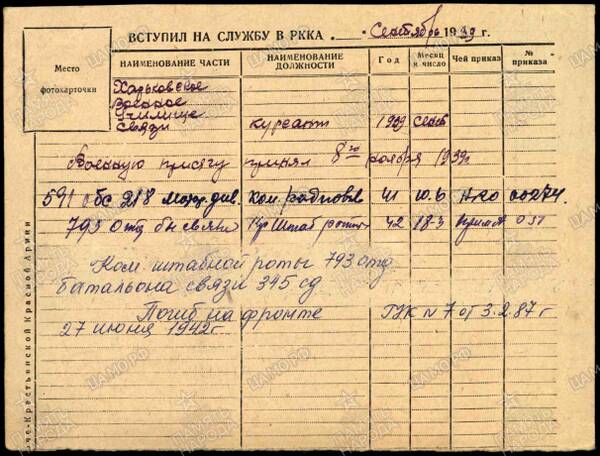 ВСТУПИЛ НА СЛУЖБУ В РККА Сентябрь 1939 г.
Место фотокарточки
НАИМЕНОВАНИЕ ЧАСТИ
НАИМЕНОВАНИЕ ДОЛЖНОСТИ
Год
Месяц и число
Чей приказ
№ приказа
Харьковское
Военное
Училище
связи курсант 1939 сент
Военную присягу принял 8го ноября 1939г
591 обс 218 мотр. див. ком. радиовзв 41 10.6 НКО 00274.
793 отд бн связи штаб роты 42 18.3
Ком. штабной роты 793 отд
батальона связи 345 сд
Погиб на фронте ГУК N 7 от 3.2.87 г
27 июня 1942г
че-Крестьянской Красной Армии
ПАМЯТЬ НАРОДА
ЦАМО.РФ